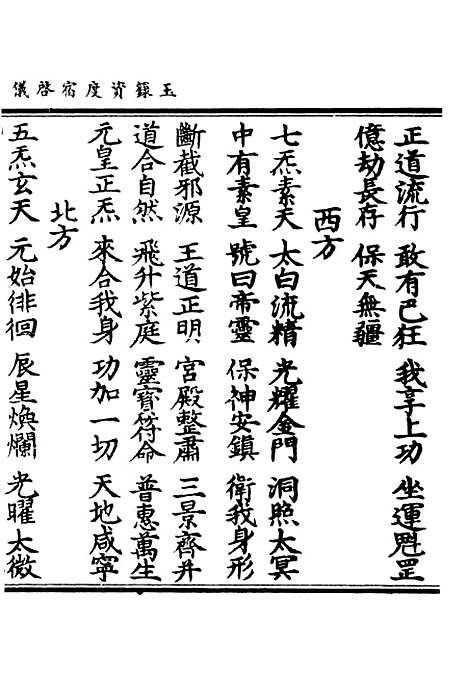 玉籙資度宿啓儀
正道流行 敢有巴狂 我享上功 坐運魁罡
億劫長存 保天無疆
西方
七炁素天 太白流精 光耀金門 洞照太冥
中有素皇 號曰帝靈 保神安鎮 衛我身形
斷截邪源 王道正明 宮殿整肅 三景齊并
道合自然 飛升紫庭 靈寶符命 普惠萬生
元皇正炁 來合我身 功加一切 天地咸寧
北方
五炁玄天 元始徘徊 辰星煥爛 光曜太微